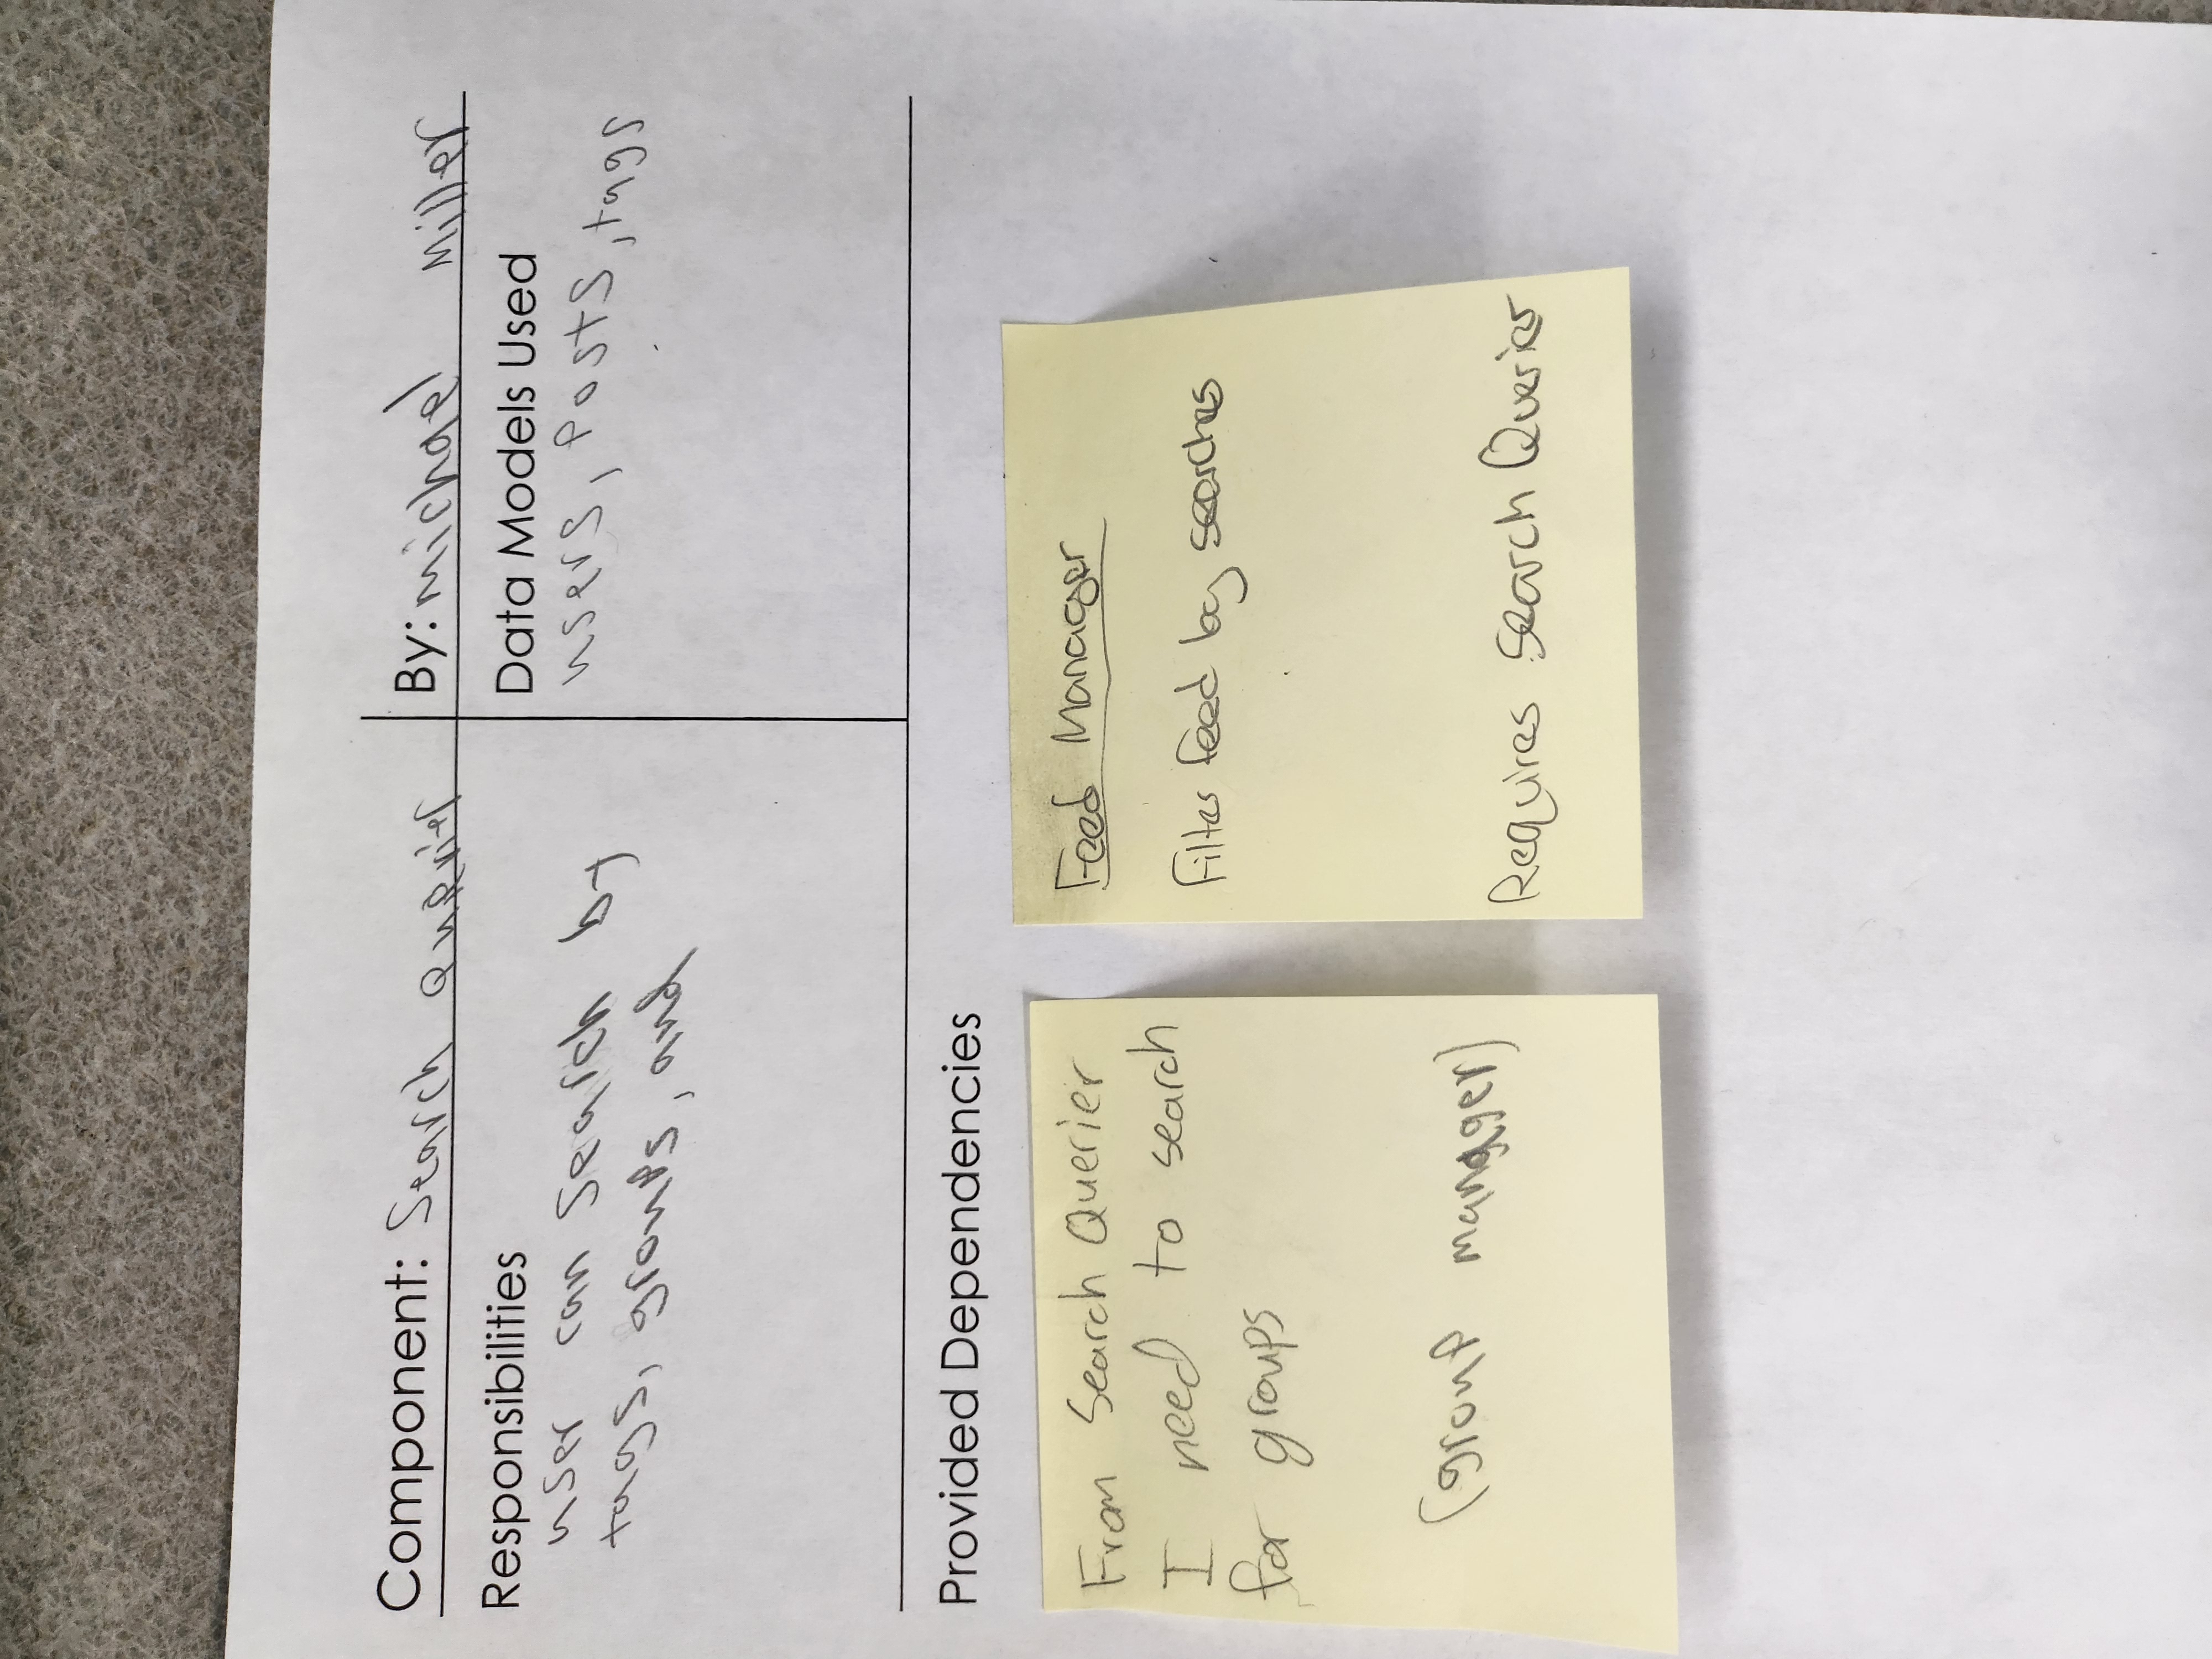 Component: Search Querier
By: michael Miller
Responsibilities
user can search by
tags, groups, and
Data Models Used
users, Posts, tags
Provided Dependencies
From Search Querier
I need to search
for groups
(group manager)
Feed Manager
Filter feed by searches
Requires Search Querier